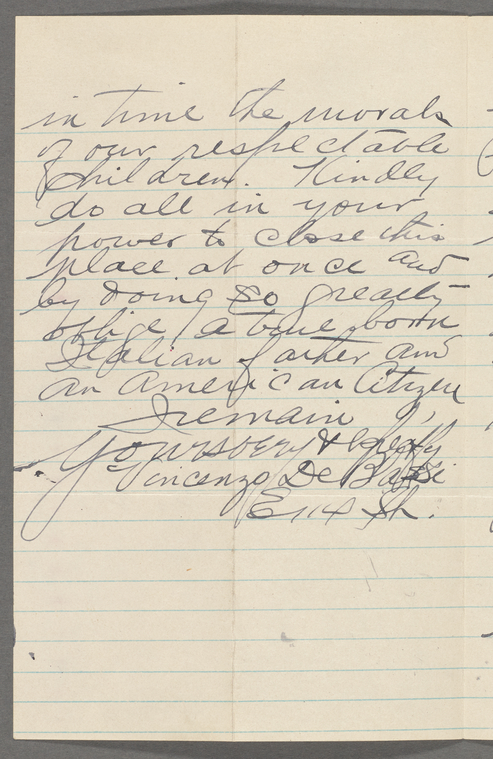 in time the morals
of our respectable
children. Kindly
do all in your
power to close this
place at once and
by doing so greatly
oblige, a true born
Italian father and
an American Citizen
I remain
Yours very
Vincenzo De
E 114 St.